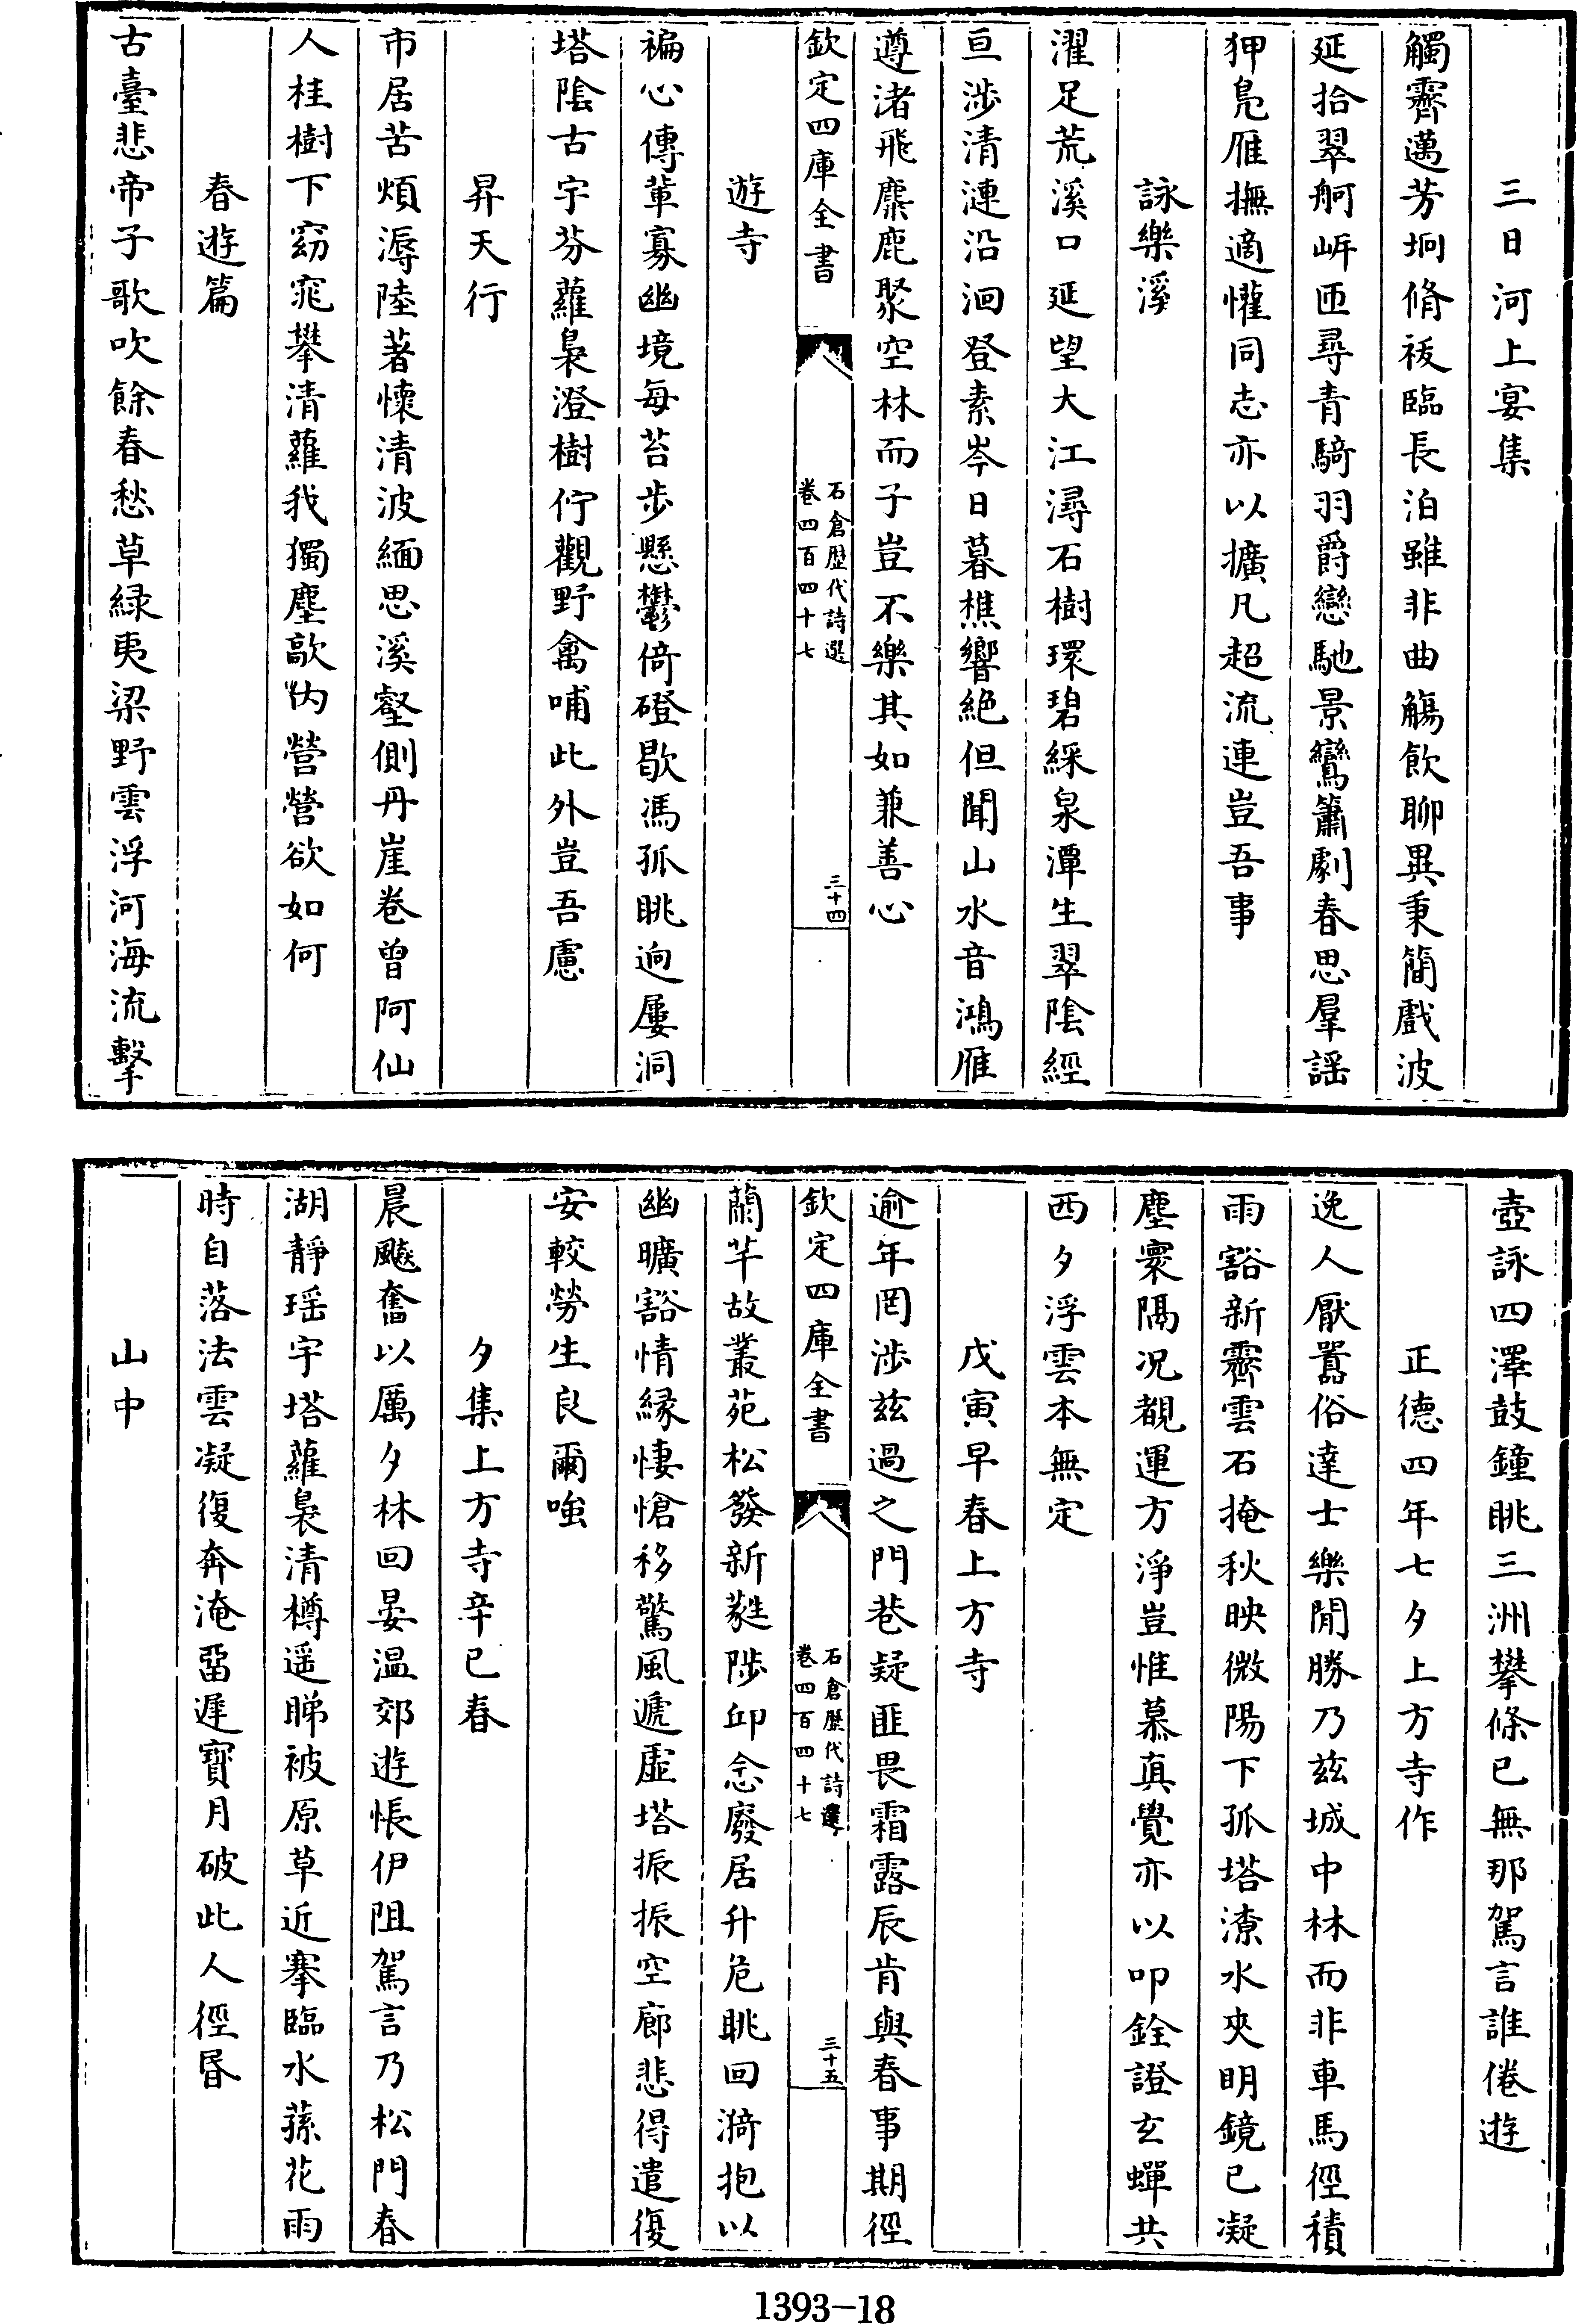 三日河上宴集
觸霽邁芳坰脩祓臨長泊雖非曲觴飲聊異秉蕑戲波
延拾翠舸㟁匝尋青騎羽爵戀馳景鸞簫劇春思羣謡
狎鳬雁撫適懽同志亦以擴凡超流連豈吾事
詠樂溪
濯足荒溪口延望大江潯石樹環碧綵泉潭生翠陰經
亘涉清漣沿洄登素岑日暮樵響絶但聞山水音鴻雁
遵渚飛麋鹿聚空林而子豈不樂其如兼善心
欽定四庫全書
石倉歴代詩選
卷四百四十七
三十四
遊寺
褊心傳葷寡幽境每苔步懸鬱倚磴歇馮孤眺逈屢洞
塔陰古宇芬蘿裊澄樹佇觀野禽哺此外豈吾慮
昇天行
市居苦煩溽陸著懷清波緬思溪壑側丹崖卷曾阿仙
人桂樹下窈窕攀清蘿我獨塵歊内營營欲如何
春遊篇
古臺悲帝子歌吹餘春愁草緑夷梁野雲浮河海流擊
壺詠四澤鼓鐘眺三洲攀條已無那駕言誰倦遊
正德四年七夕上方寺作
逸人厭囂俗達士樂閒勝乃兹城中林而非車馬徑積
雨豁新霽雲石掩秋映微陽下孤塔潦水夾明鏡已凝
塵寰隔况覩運方淨豈惟慕真覺亦以叩銓證玄蟬共
西夕浮雲本無定
戊寅早春上方寺
逾年罔涉兹過之門巷疑匪畏霜露辰肯與春事期徑
欽定四庫全書
石倉歴代詩選
卷四百四十七
三十五
蘭芊故叢苑松發新蕤陟邱念廢居升危眺回漪抱以
幽曠豁情縁悽愴移驚風遞虚塔振振空廊悲得遣復
安較勞生良爾嗤
夕集上方寺辛巳春
晨飈奮以厲夕林回晏温郊遊悵伊阻駕言乃松門春
湖靜瑶宇塔蘿裊清樽遥睇被原草近搴臨水蓀花雨
時自落法雲凝復奔淹畱遲寳月破此人徑昏
山中
1393-18